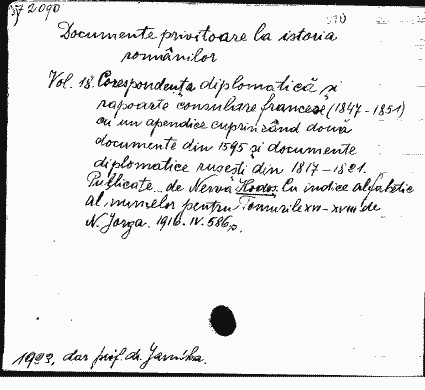 57 2090
Documente privitoare la istoria
românilor
Vol. 18. Corespondența diplomatică și
rapoarte consulare franceze (1847-1851)
cu un apendice cuprinzând două
documente din 1595 și documente
diplomatice rusești din 1817-1821.
Publicate de Nerva Hodoș. Cu indice alfabetic
al numelor pentru Tomurile XVI-XVIII de
N. Jorga. 1916. IV. 586 p.
1923. dar prof. dr. Jarníka.